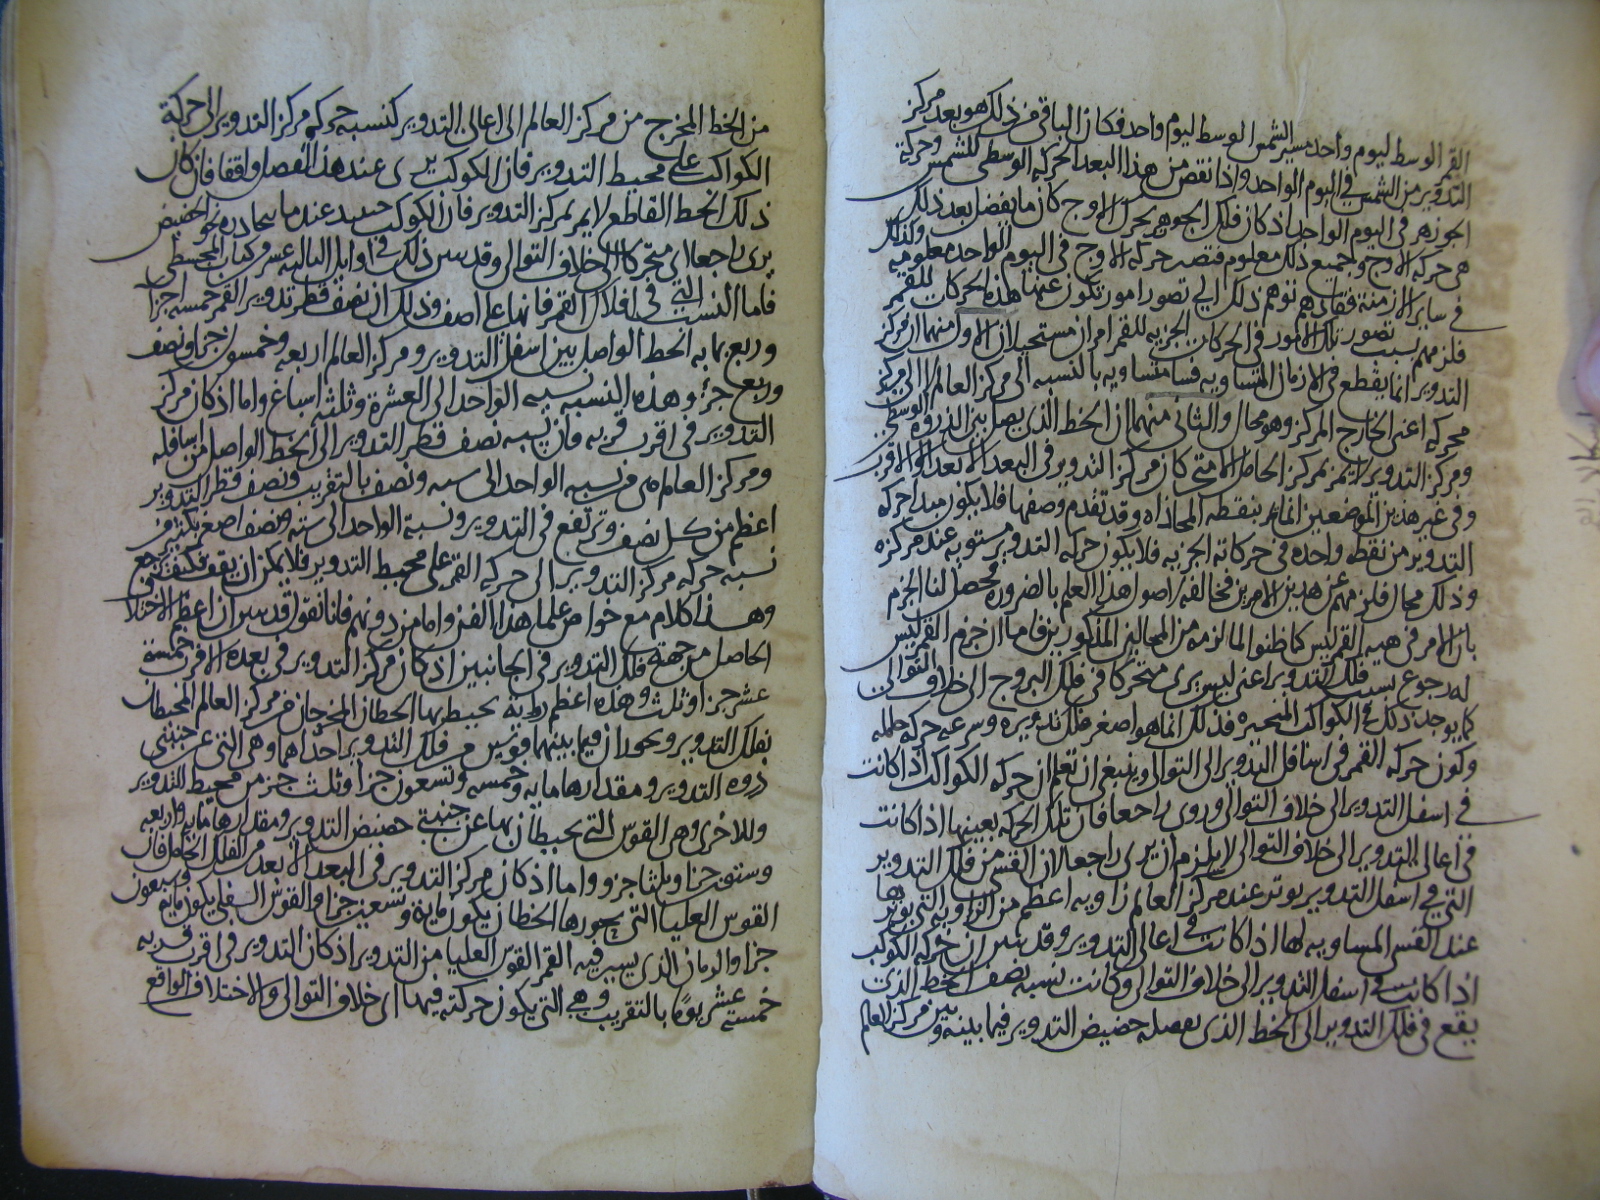 القمر الوسط ليوم واحد مسير الشمس الوسط ليوم واحد فكان الباقى من ذلك هو بعد مركز
التدوير من الشمس فى اليوم الواحد واذا نقص من هذا البعد الحركه الوسطى للشمس وحركة
الجوزهر فى اليوم الواحد اذ كان فلك الجوزهر يحرك الاوج كان ما يفضل بعد ذلك
هى حركه الاوج وجميع ذلك معلوم فتصير حركه الاوج فى اليوم الواحد معلومه وكذلك
فى ساير الازمنة فقادهم توهم ذلك الى تصور امور تكون عنها هذه الحركات للقمر
فلزمهم بسبب تصور تلك الامور فى الحركات الجزيه للقمر امران مستحيلان الاول منهما ان مركز
التدوير انما يقطع فى الازمان المتساويه قسيا متساويه بالنسبه الى مركز العالم لا الى مركز
محركه اعنى الخارج المركز وهو محال والثانى منهما ان الخط الذى يصل بين الذروه الوسطى
ومركز التدوير لا يمر بمركز الحامل الا متى كان مركز التدوير فى البعد الابعد او الاقرب
وفى غير هذين الموضعين انما يمر بنقطه المحاذاه وقد تقدم وصفها فلا يكون مبدا حركه
التدوير من نقطه واحده فى حركاته الجزيه فلا يكون حركه التدوير مستويه عند مركزه
وذلك محال فلزمهم عن هذين الامرين مخالفه اصول هذا العلم بالضروره فحصل لنا الجزم
بان الامر فى هيه القمر ليس كما ظنوا لما لزمه من المحالين المذكورين فاما ان جرم القمر ليس
له رجوع بسبب فلك التدوير اعنى ليس يرى متحركا فى فلك البروج الى خلاف التوالى
كما يوجد ذلك فى الكواكب المتحيره فذلك انما هو لصغر فلك تدويره وسرعه حركه حامله
وكون حركه القمر فى اسافل التدوير الى التوالى وينبغى ان تعلم ان حركه الكواكب اذا كانت
فى اسفل التدوير الى خلاف التوالى وروى راجعا فان تلك الحركه بعينها اذا كانت
فى اعالى التدوير الى خلاف التوالى لا يلزم ان يرى راجعا لان القسى من فلك التدوير
التى فى اسفل التدوير يوتر عند مركز العالم زاويه اعظم من الزاويه التى يوترها
عند القسى المساويه لها اذا كانت فى اعالى التدوير وقد تبين ان حركه الكوكب
اذا كانت فى اسفل التدوير الى خلاف التوالى وكانت نسبه نصف الخط الذى
يقع فى فلك التدوير الى الخط الذى يفصله حضيض التدوير فيما بينه وبين مركز العالم
من الخط المخرج من مركز العالم الى اعالى التدوير كنسبه حركه مركز التدوير الى حركة
الكواكب على محيط التدوير فان الكوكب يرى عند هذا الفصل واقفا فان كان
ذلك الخط القاطع لا يمر بمركز التدوير فان الكوكب حينيد عندما ينحاز نحو الحضيض
يرى راجعا اى متحركا الى خلاف التوالى وقد تبين ذلك فى اوايل الثانيه عشر من كتاب المجسطى
فاما النسب التى فى افلاك القمر فانها على ما اصف وذلك ان نصف قطر تدوير القمر خمسه اجزا
وربع بما به الخط الواصل بين اسفل التدوير ومركز العالم اربعه وخمسون جزا ونصف
وربع جزء وهذه النسبه نسبه الواحد الى العشرة وثلثه اسباع واما اذ كان مركز
التدوير فى اقرب قربه فان نسبه نصف قطر التدوير الى الخط الواصل من اسافله
ومركز العالم هى نسبه الواحد الى سته ونصف بالتقريب ونصف قطر التدوير
اعظم من كل نصف وتر تقع فى التدوير ونسبة الواحد الى سته ونصف اصغر بكثير من
نسبه حركه مركز التدوير الى حركه القمر على محيط التدوير فلا يمكن ان يقف فكيف يرجع
وهذا كلام مع خواص علما هذا الفن واما من دونهم فانا نقول قد تبين ان اعظم الاختلاف
الحاصل من جهته فلك التدوير فى الجانبين اذ كان مركز التدوير فى بعده الاقرب خمسة
عشر جزا وثلث وهذه اعظم زاويه يحيط بها الخطان المخرجان من مركز العالم المحيطان
بفلك التدوير ويحوزان فيما بينهما قوسين من فلك التدوير احداهما وهى التى عن جنبتى
ذروه التدوير ومقدارها مايه وخمسه وتسعون جزا وثلث جز من محيط التدوير
وللاخرى وهى القوس التى يحيطان بها عن جنبتى حضيض التدوير ومقدارها مايه واربعه
وستون جزا وثلثا جزو واما اذ كان مركز التدوير فى البعد الابعد من الفلك الحامل فان
القوس العليا التى يحوزها الخطان يكون مايه وتسعين جزا والقوس السفلى يكون مايه وسبعون
جزا والزمان الذى يسير فيه القمر القوس العليا من التدوير اذ كان التدوير فى اقرب قربه
خمسة عشر يوما بالتقريب وهى التى يكون حركته فيها اى خلاف التوالى والاختلاف الواقع